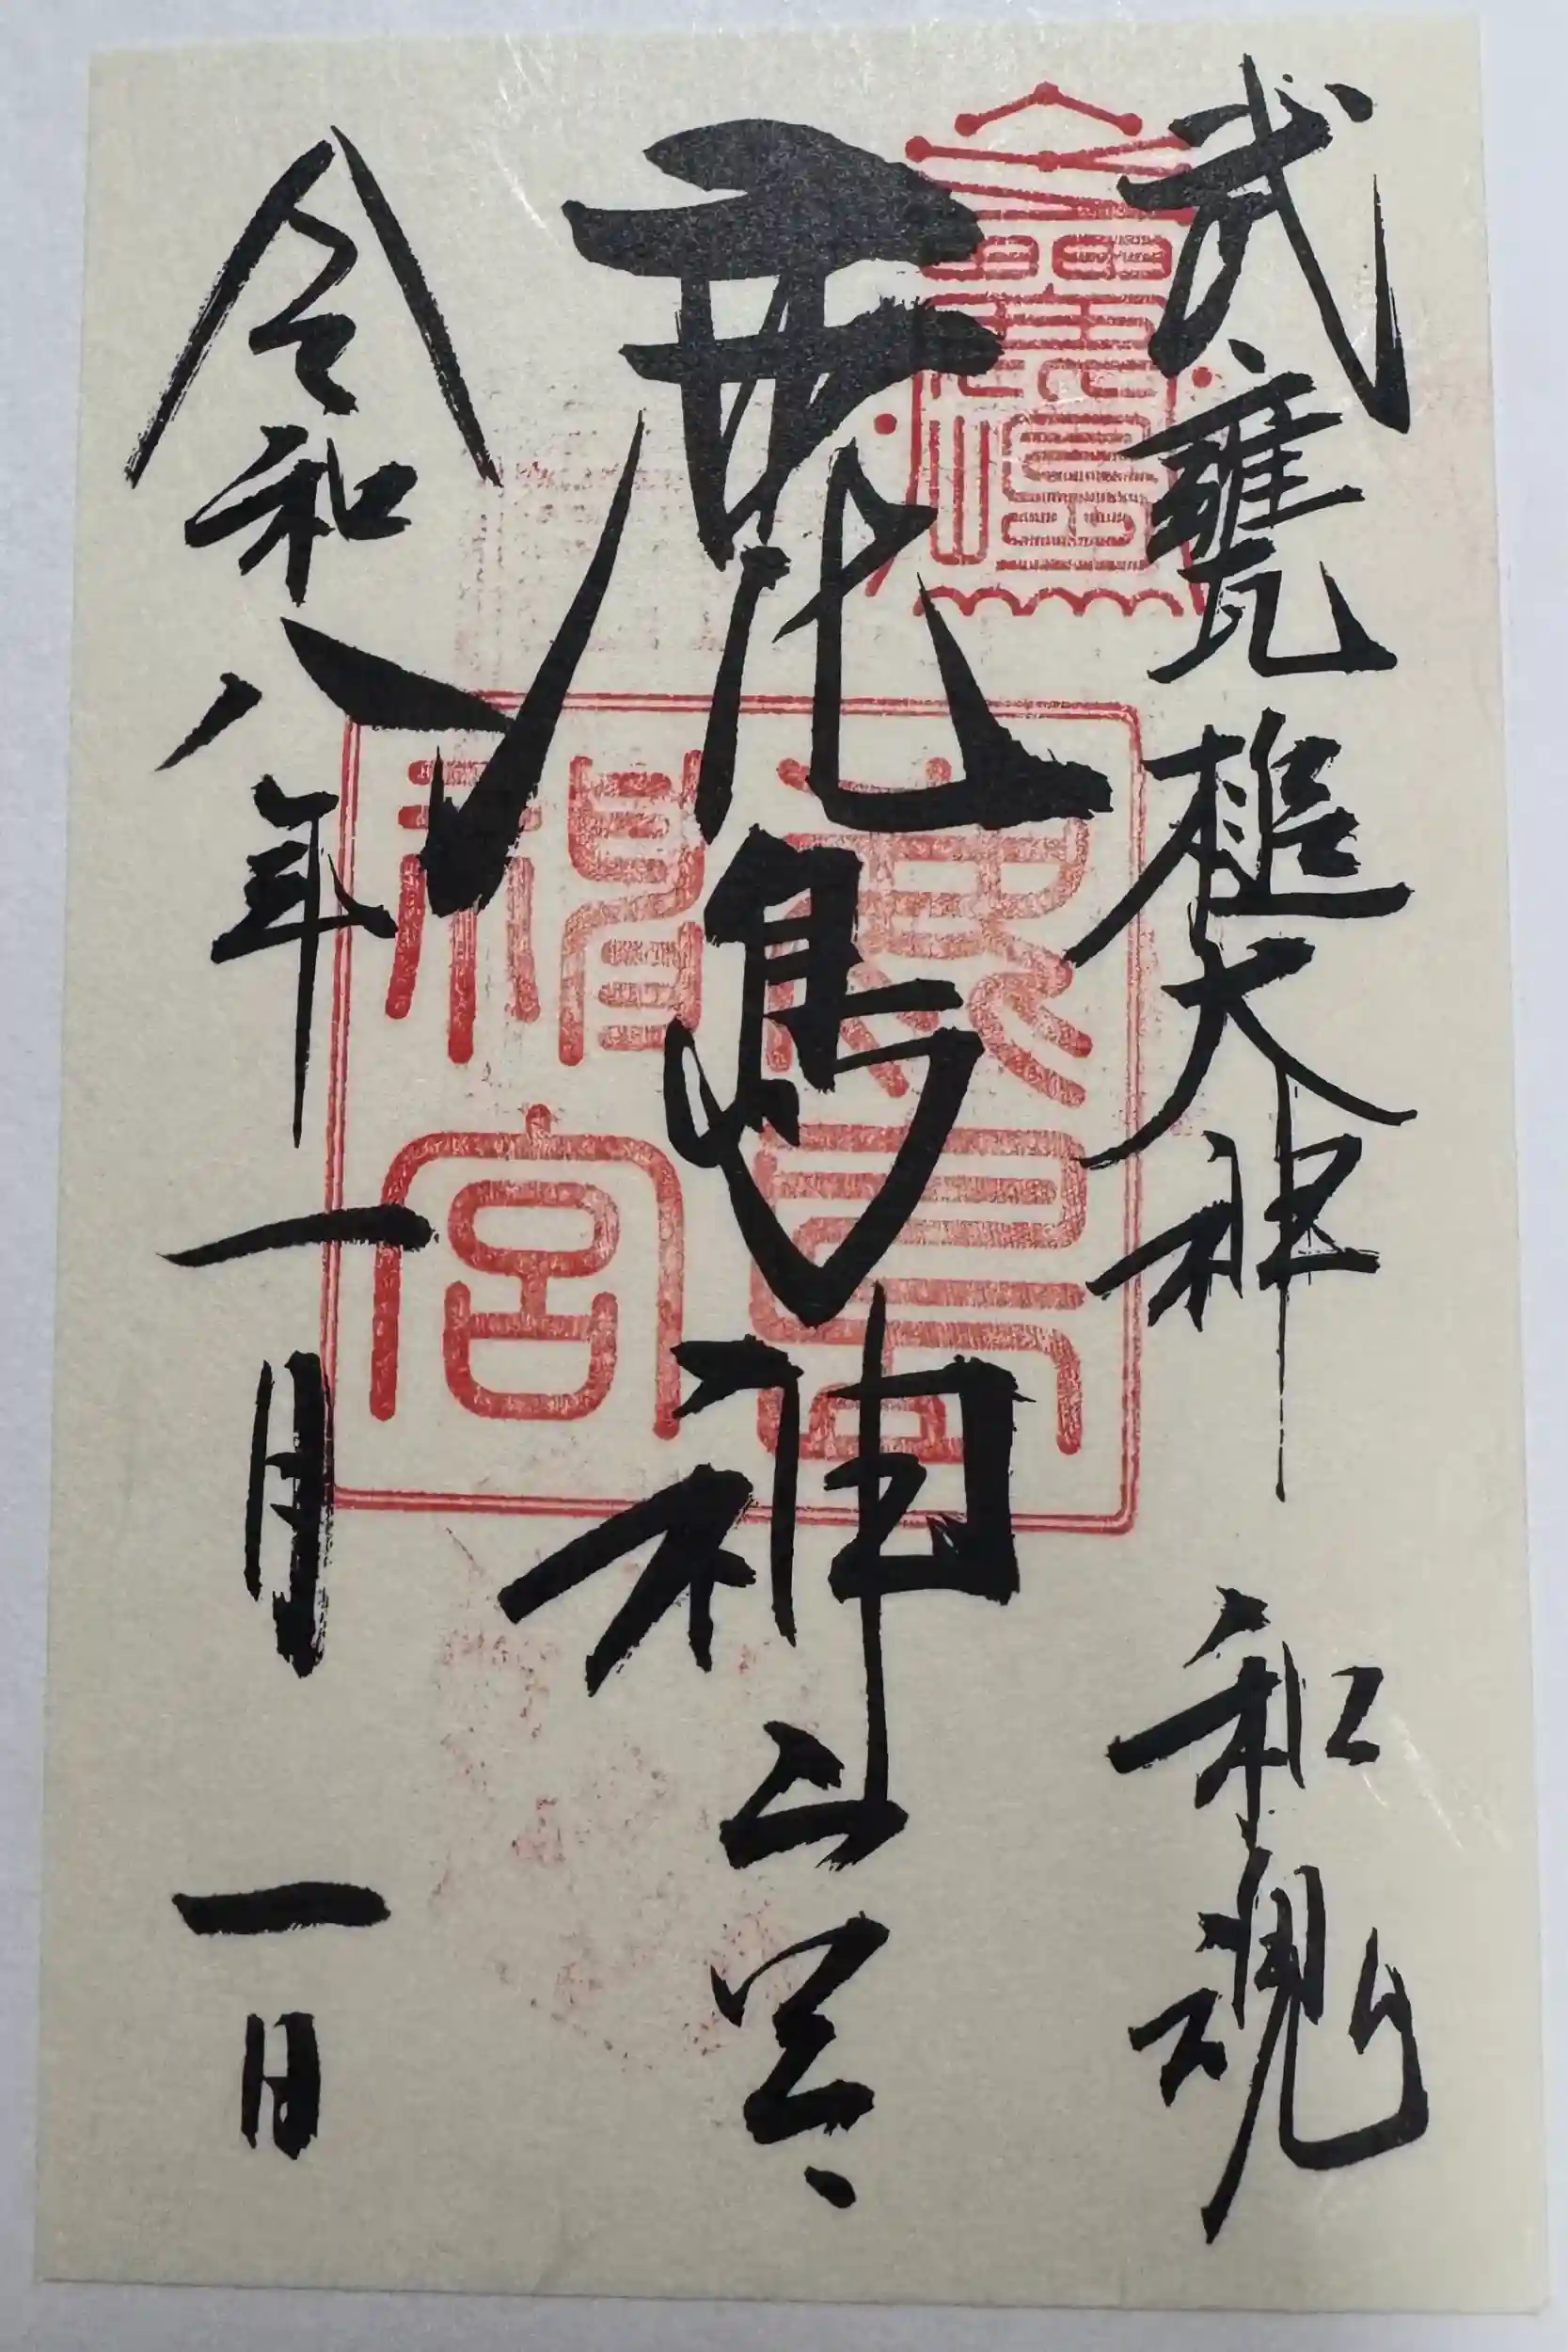 武甕槌大神 和魂
鹿島神宮
令和八年一月一日
鹿島神宮